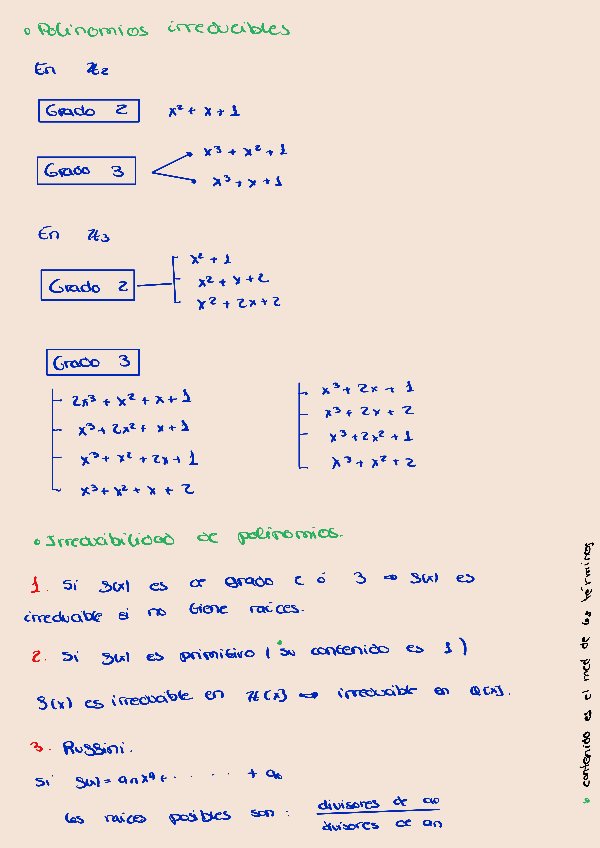 Polinomios irreducibles
En ℤ₂
Grado 2   x² + x + 1
Grado 3
x³ + x² + 1
x³ + x + 1
En ℤ₃
Grado 2
x² + 1
x² + x + 2
x² + 2x + 2
Grado 3
2x³ + x² + x + 1
x³ + 2x² + x + 1
x³ + x² + 2x + 1
x³ + x² + x + 2
x³ + 2x + 1
x³ + 2x + 2
x³ + 2x² + 1
x³ + x² + 2
Irreducibilidad de polinomios.
1. Si f(x) es de grado 2 ó 3 ⇒ f(x) es
irreducible si no tiene raíces.
2. Si f(x) es primitivo (su contenido es 1)
f(x) es irreducible en ℤ[x] ⟺ irreducible en Q[x].
3. Ruffini.
Si f(x) = aₙxⁿ + ······ + a₀
las raíces posibles son: divisores de a₀
divisores de aₙ
contenido es el mcd de los términos